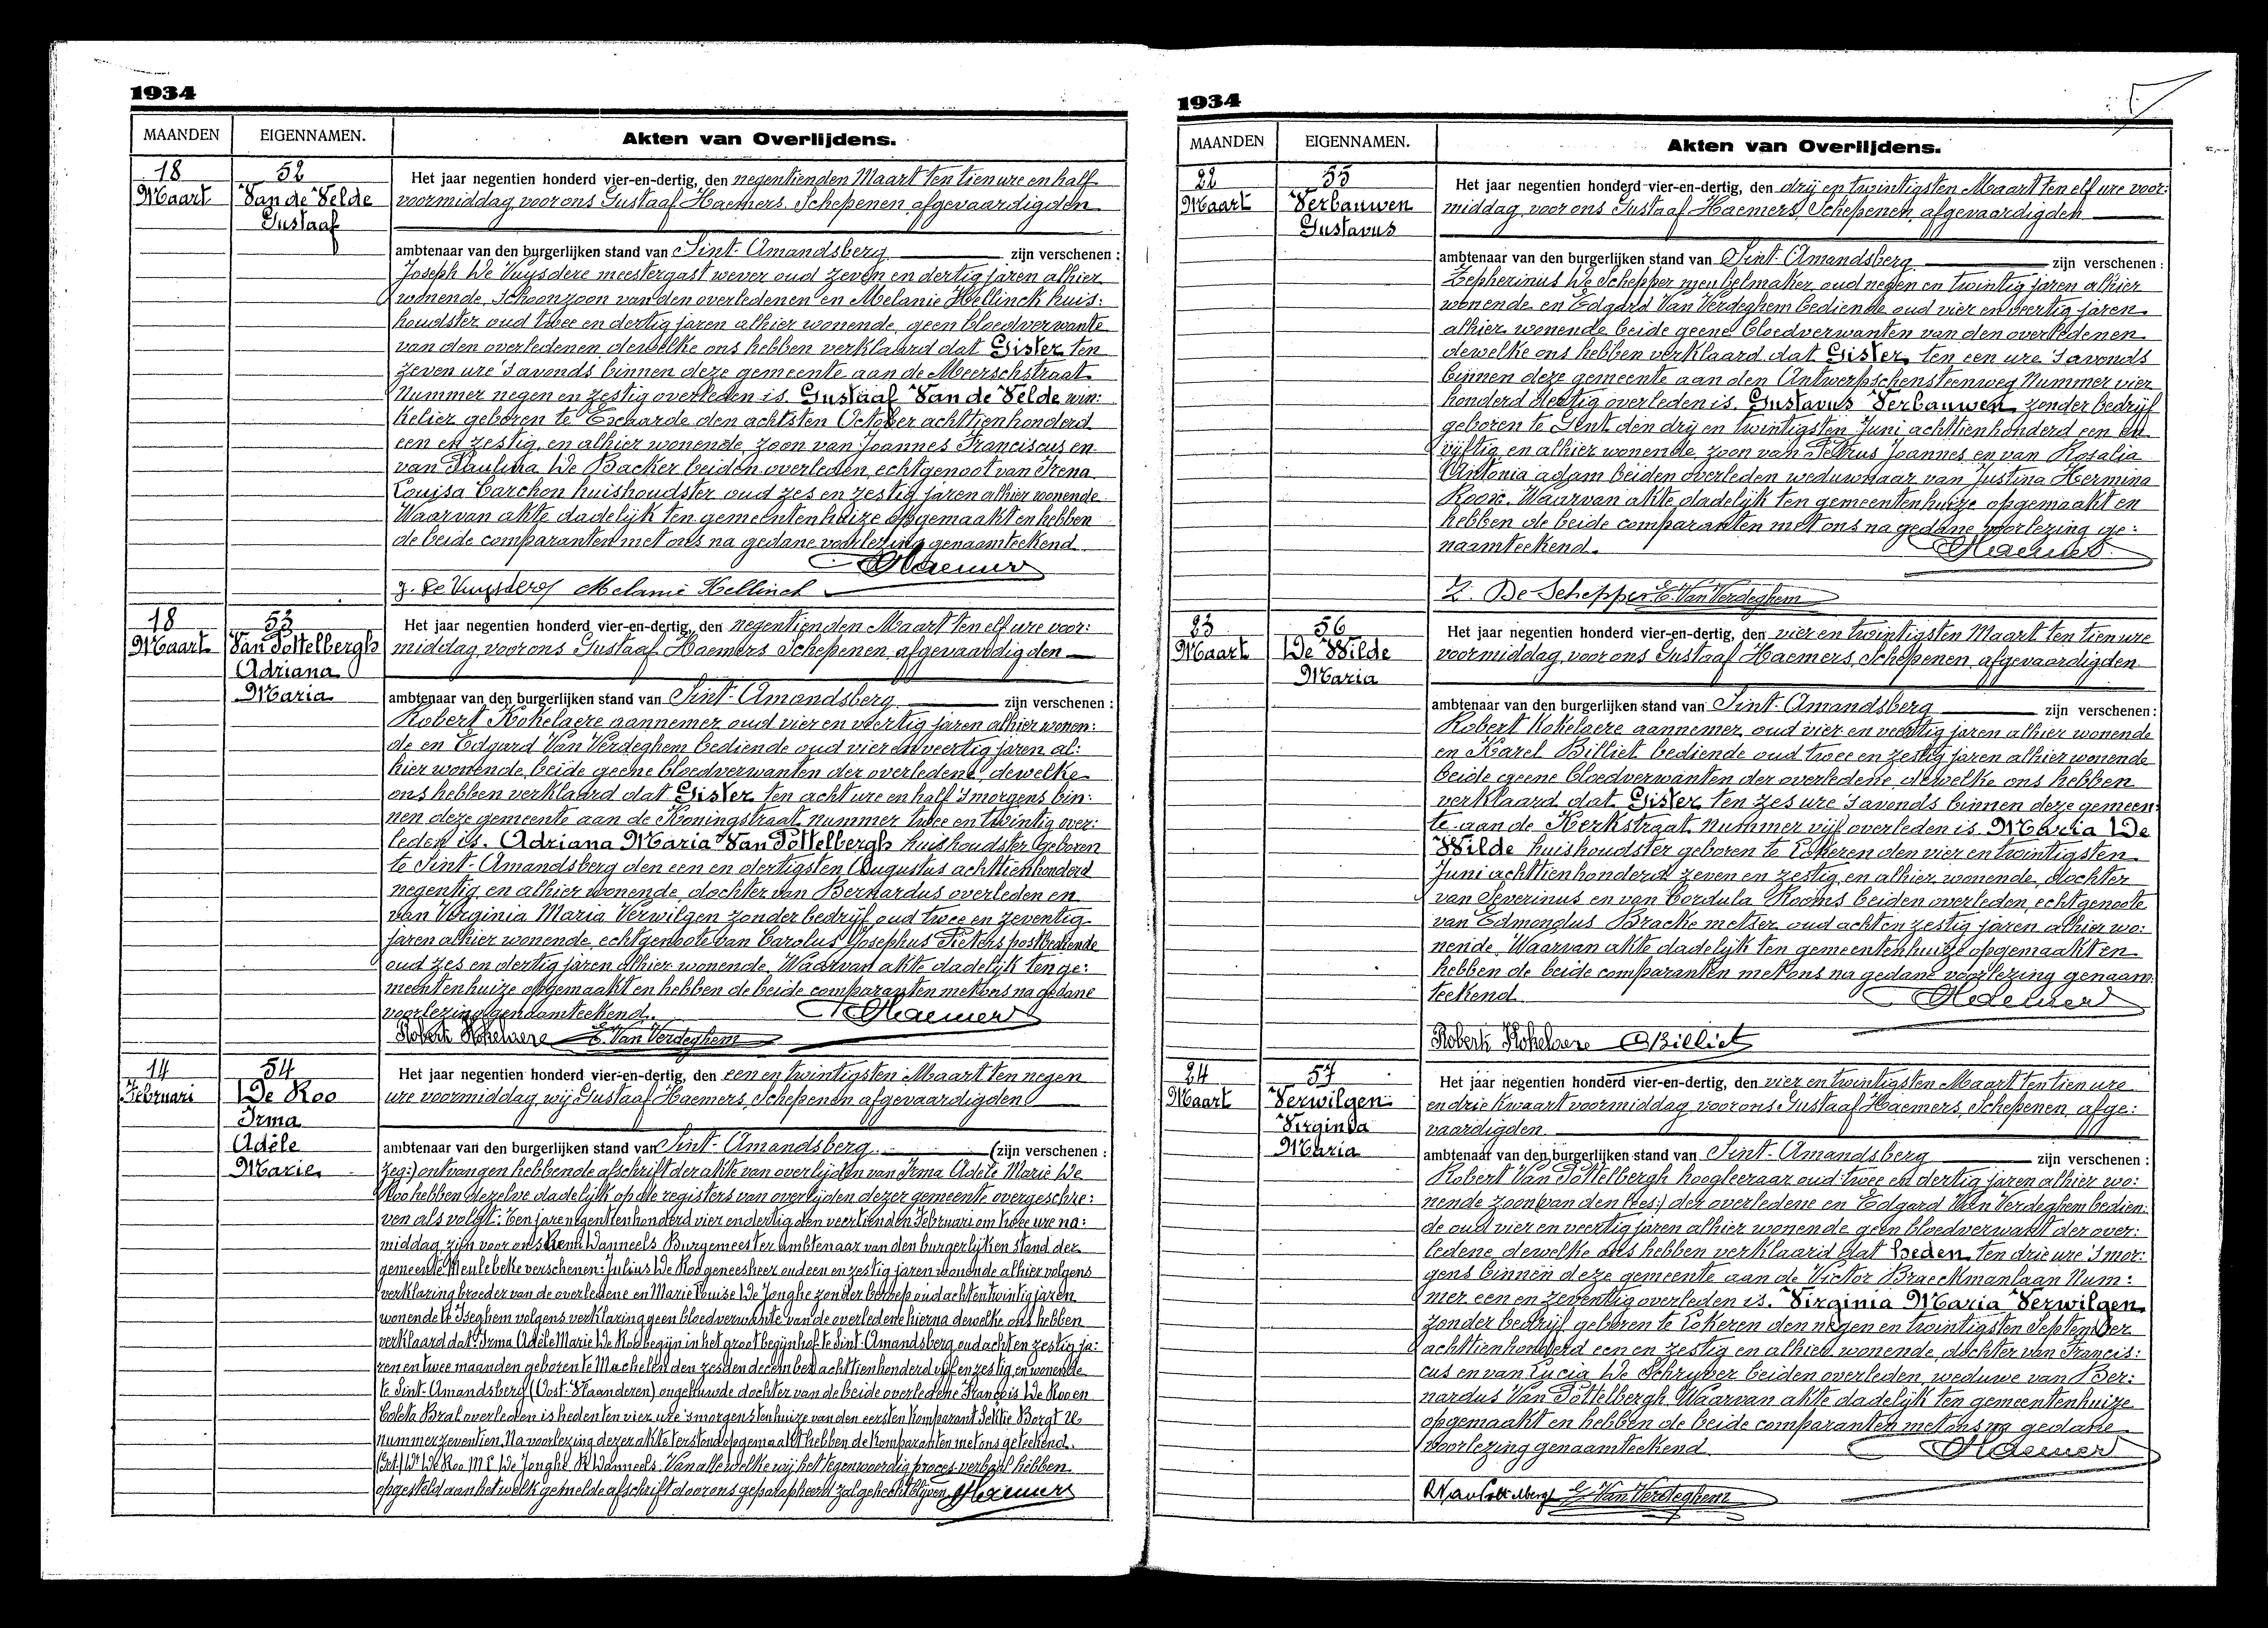 1934
MAANDEN EIGENNAMEN. Akten van Overlijdens.
18 52
Maart Van de Velde
Gustaaf
Het jaar negentien honderd vier-en-dertig, den negentienden Maart ten tien ure en half
voormiddag, voor ons Gustaaf Haemers, Schepenen, afgevaardigden
ambtenaar van den burgerlijken stand van Sint-Amandsberg zijn verschenen :
Joseph De Vuysdere meestergast wever oud zeven en dertig jaren alhier
wonende, schoonzoon van den overledenen en Melanie Hellinck huis:
houdster oud twee en dertig jaren alhier wonende, geen bloedverwante
van den overledenen dewelke ons hebben verklaard dat Gister ten
zeven ure 's avonds binnen deze gemeente aan de Meerschstraat
Nummer negen en zestig overleden is. Gustaaf Van de Velde win:
kelier geboren te Everarde den achtsten October achttienhonderd
een en zestig, en alhier wonende, zoon van Joannes Franciscus en
van Paulina De Backer beiden overleden, echtgenoot van Irena
Louisa Carchon huishoudster oud zes en zestig jaren alhier wonende
Waarvan akte dadelijk ten gemeentenhuize opgemaakt en hebben
de beide comparanten met ons na gedane voorlezing genaamteekend
GHaemers
J. De Vuysdere Melanie Hellinck
18 53
Maart Van Pottelbergh
Adriana
Maria
Het jaar negentien honderd vier-en-dertig, den negentienden Maart ten elf ure voor:
middag, voor ons Gustaaf Haemers Schepenen, afgevaardigden
ambtenaar van den burgerlijken stand van Sint-Amandsberg zijn verschenen :
Robert Kokelaere aannemer oud vier en veertig jaren alhier wonen:
de en Edgard Van Verdeghem bediende oud vier en veertig jaren al:
hier wonende, beide geene bloedverwanten der overledene, dewelke
ons hebben verklaard dat Gister ten acht ure en half 's morgens bin:
nen deze gemeente aan de Koningstraat, nummer twee en twintig over:
leden is. Adriana Maria Van Pottelbergh huishoudster geboren
te Sint-Amandsberg den een en dertigsten Augustus achttienhonderd
negentig en alhier wonende, dochter van Bernardus overleden en
van Virginia Maria Verwilgen zonder bedrijf oud twee en zeventig
jaren alhier wonende, echtgenoote van Carolus Josephus Pieters postbediende
oud zes en dertig jaren alhier wonende. Waarvan akte dadelijk ten ge:
meentenhuize opgemaakt en hebben de beide comparanten met ons na gedane
voorlezing genaamteekend. GHaemers
Robert Kokelaere E. Van Verdeghem
14 54
Februari De Roo
Irma
Adèle
Marie
Het jaar negentien honderd vier-en-dertig, den een en twintigsten Maart ten negen
ure voormiddag, wij Gustaaf Haemers, Schepenen afgevaardigden
ambtenaar van den burgerlijken stand van Sint-Amandsberg (zijn verschenen :
zeg:) ontvangen hebbende afschrift der akte van overlijden van Irma Adèle Marie De
Roo hebben dezelve dadelijk op de registers van overlijden dezer gemeente overgeschre:
ven als volgt: Ten jare negentienhonderd vier en dertig den veertienden Februari om twee ure na:
middag, zijn voor ons Remi Wanneels Burgemeester ambtenaar van den burgerlijken stand der
gemeente Meulebeke verschenen: Julius De Roo geneesheer oud een en zestig jaren wonende alhier volgens
verklaring broeder van de overledene en Marie Louise De Jonghe zonder beroep oud acht en twintig jaren
wonende te Iseghem volgens verklaring geen bloedverwante van de overledene hierna dewelke ons hebben
verklaard dat: Irma Adèle Marie De Roo begijn in het groot begijnhof te Sint-Amandsberg oud acht en zestig ja:
ren en twee maanden geboren te Machelen den zesden december achttienhonderd vijf en zestig, en wonende
te Sint-Amandsberg (Oost-Vlaanderen) ongehuwde dochter van de beide overledene François De Roo en
Coleta Bral overleden is heden ten vier ure 's morgens ten huize van den eersten komparant Sektie Borgt
nummer zeventien. Na voorlezing dezer akte terstond opgemaakt hebben de komparanten met ons geteekend.
(Get.) Dr De Roo M L De Jonghe R Wanneels. Van alle welke wij het tegenwoordig proces-verbaal hebben
opgesteld aan het welk gemelde afschrift door ons geparapheerd zal gehecht blijven. GHaemers
1934
MAANDEN EIGENNAMEN. Akten van Overlijdens.
22 55
Maart Verbauwen
Gustavus
Het jaar negentien honderd vier-en-dertig, den drij en twintigsten Maart ten elf ure voor:
middag, voor ons Gustaaf Haemers, Schepenen, afgevaardigden
ambtenaar van den burgerlijken stand van Sint-Amandsberg zijn verschenen :
Zepherinus De Schepper meubelmaker oud negen en twintig jaren alhier
wonende en Edgard Van Verdeghem bediende oud vier en veertig jaren
alhier wonende beide geene bloedverwanten van den overledenen
dewelke ons hebben verklaard dat Gister ten een ure 's avonds
binnen deze gemeente aan den Antwerpschensteenweg Nummer vier
honderd dertig overleden is. Gustavus Verbauwen zonder bedrijf
geboren te Gent den drij en twintigsten Juni achttienhonderd een en
vijftig en alhier wonende, zoon van Petrus Joannes en van Rosalia
Antonia Adam beiden overleden weduwnaar van Justina Hermina
Rooix. Waarvan akte dadelijk ten gemeentenhuize opgemaakt en
hebben de beide comparanten met ons na gedane voorlezing ge:
naamteekend. GHaemers
Z. De Schepper E. Van Verdeghem
23 56
Maart De Wilde
Maria
Het jaar negentien honderd vier-en-dertig, den vier en twintigsten Maart ten tien ure
voormiddag, voor ons Gustaaf Haemers, Schepenen, afgevaardigden
ambtenaar van den burgerlijken stand van Sint-Amandsberg zijn verschenen :
Robert Kokelaere aannemer oud vier en veertig jaren alhier wonende
en Karel Billiet bediende oud twee en zestig jaren alhier wonende
beide geene bloedverwanten der overledene, dewelke ons hebben
verklaard dat Gister ten zes ure 's avonds binnen deze gemeen:
te aan de Kerkstraat nummer vijf overleden is. Maria De
Wilde huishoudster geboren te Lokeren den vier en twintigsten
Juni achttienhonderd zeven en zestig, en alhier wonende, dochter
van Severinus en van Cordula Rooms beiden overleden, echtgenoote
van Edmondus Bracke metser oud acht en zestig jaren alhier wo:
nende. Waarvan akte dadelijk ten gemeentenhuize opgemaakt en
hebben de beide comparanten met ons na gedane voorlezing genaam:
teekend. GHaemers
Robert Kokelaere CBilliet
24 57
Maart Verwilgen
Virginia
Maria
Het jaar negentien honderd vier-en-dertig, den vier en twintigsten Maart ten tien ure
en drie kwaart voormiddag voor ons Gustaaf Haemers, Schepenen, afge:
vaardigden
ambtenaar van den burgerlijken stand van Sint-Amandsberg zijn verschenen :
Robert Van Pottelbergh hoogleeraar oud twee en dertig jaren alhier wo:
nende zoon (van den lees:) der overledene en Edgard Van Verdeghem bedien:
de oud vier en veertig jaren alhier wonende geen bloedverwant der over:
ledene dewelke ons hebben verklaard dat heden ten drie ure 's mor:
gens binnen deze gemeente aan de Victor Braeckmanlaan Num:
mer een en zeventig overleden is. Virginia Maria Verwilgen
zonder bedrijf geboren te Lokeren den negen en twintigsten September
achttienhonderd een en zestig en alhier wonende, dochter van Francis:
cus en van Lucia De Schryver beiden overleden, weduwe van Ber:
nardus Van Pottelbergh. Waarvan akte dadelijk ten gemeentenhuize
opgemaakt en hebben de beide comparanten met ons na gedane
voorlezing genaamteekend. GHaemers
RVan Pottelbergh E. Van Verdeghem